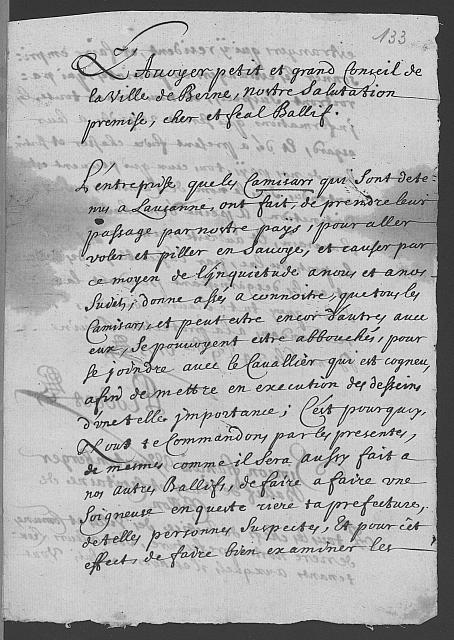 133
L'Advoyer petit et grand Conseil de
la Ville de Berne, nostre Salutation
premise, cher et feal Ballif.
L'entreprise que les Camisars qui sont dete-
nus a Lausanne, ont fait, de prendre leur
passage par nostre païs, pour aller
voler et piller en Savoye, et causer par
ce moyen de l'inquietude a nous et a nos
Sujets; donne assés a connoitre, que tous les
Camisars, et peut être encor d'autres avec
eux, se pouvoyent etre abbouchés, pour
se joindre avec le Cavallier qui est cogneu,
afin de mettre en execution des desseins
d'une telle importance; C'est pourquoy,
Nous te Commandons par les presentes,
de mesmes comme il sera aussy fait a
nos autres Ballifs, de faire a faire une
soigneuse enqueste riere ta prefecture,
de telles personnes suspectes, Et pour cét
effect, de faire bien examiner les